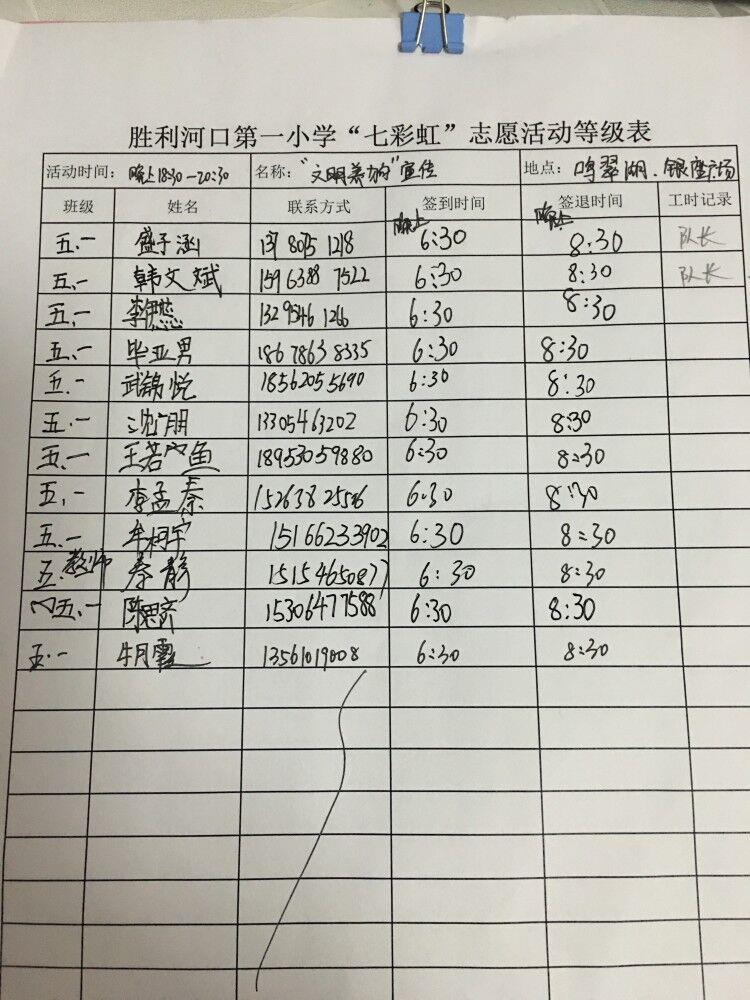 胜利河口第一小学“七彩虹”志愿活动等级表
活动时间：晚上18:30—20:30 名称：“文明养狗”宣传 地点：鸣翠湖、银座广场
班级 姓名 联系方式 签到时间 签退时间 工时记录
五、一 盛子涵 137 8075 1218 晚上 6:30 晚上 8:30 队长
五、一 韩文斌 159 6388 7522 6:30 8:30 队长
五、一 李 132 9546 1266 6:30 8:30
五、一 毕亚男 186 7863 8335 6:30 8:30
五、一 武锦悦 18562055690 6:30 8:30
五、一 沈广朋 13305463202 6:30 8:30
五、一 王若 18953059880 6:30 8:30
五、一 李孟泰 15263825526 6:30 8:30
五、一 牟柯宇 15166233902 6:30 8:30
五、教师 秦静 15154650877 6:30 8:30
五、一 陈思齐 15306477588 6:30 8:30
五、一 牛月霞 13561019008 6:30 8:30